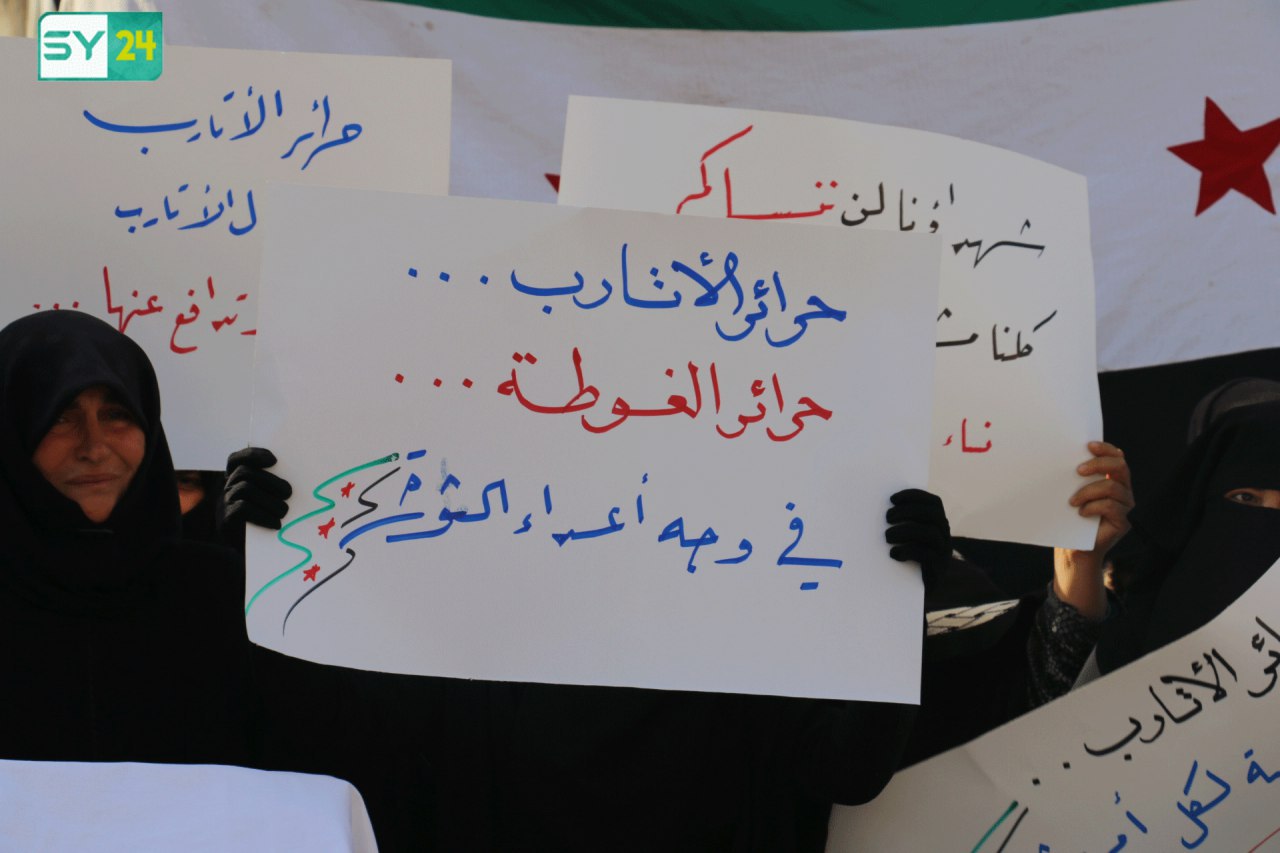 SY24
حرائر الأتارب
ل الأتارب
تدافع عنها ...
شهداؤنا لن
كلنا
حرائر الأتارب ...
حرائر الغوطة ...
في وجه أعداء الثورة
الأتارب ..
لكل